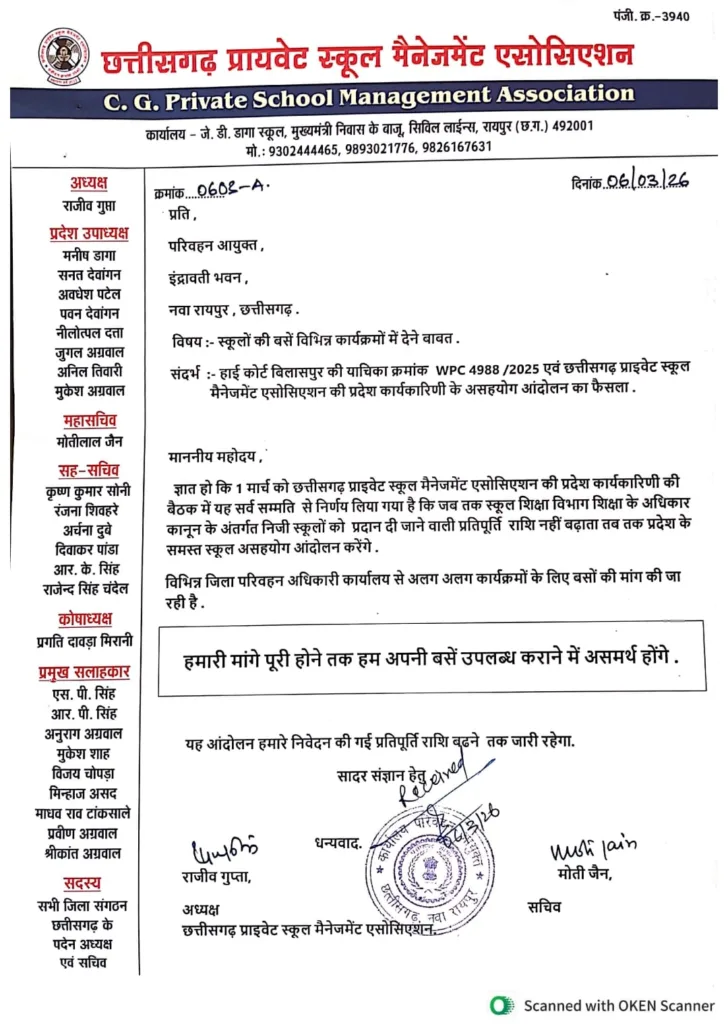 पंजी. क्र.-3940
छत्तीसगढ़ प्रायवेट स्कूल मैनेजमेंट एसोसिएशन
C. G. Private School Management Association
कार्यालय – जे. डी. डागा स्कूल, मुख्यमंत्री निवास के बाजू, सिविल लाईन्स, रायपुर (छ.ग.) 492001
मो.: 9302444465, 9893021776, 9826167631
अध्यक्ष
राजीव गुप्ता
प्रदेश उपाध्यक्ष
मनीष डागा
सनत देवांगन
अवधेश पटेल
पवन देवांगन
नीलोत्पल दत्ता
जुगल अग्रवाल
अनिल तिवारी
मुकेश अग्रवाल
महासचिव
मोतीलाल जैन
सह-सचिव
कृष्ण कुमार सोनी
रंजना शिवहरे
अर्चना दुबे
दिवाकर पांडा
आर. के. सिंह
राजेन्द सिंह चंदेल
कोषाध्यक्ष
प्रगति दावड़ा मिरानी
प्रमुख सलाहकार
एस. पी. सिंह
आर. पी. सिंह
अनुराग अग्रवाल
मुकेश शाह
विजय चोपड़ा
मिन्हाज असद
माधव राव टांकसाले
प्रवीण अग्रवाल
श्रीकांत अग्रवाल
सदस्य
सभी जिला संगठन
छत्तीसगढ़ के
पदेन अध्यक्ष
एवं सचिव
क्रमांक..0602-A.
दिनांक.06/03/26
प्रति ,
परिवहन आयुक्त ,
इंद्रावती भवन ,
नवा रायपुर , छत्तीसगढ़ .
विषय :- स्कूलों की बसें विभिन्न कार्यक्रमों में देने बाबत .
संदर्भ :- हाई कोर्ट बिलासपुर की याचिका क्रमांक WPC 4988 /2025 एवं छत्तीसगढ़ प्राइवेट स्कूल
मैनेजमेंट एसोसिएशन की प्रदेश कार्यकारिणी के असहयोग आंदोलन का फैसला .
माननीय महोदय ,
ज्ञात हो कि 1 मार्च को छत्तीसगढ़ प्राइवेट स्कूल मैनेजमेंट एसोसिएशन की प्रदेश कार्यकारिणी की
बैठक में यह सर्व सम्मति से निर्णय लिया गया है कि जब तक स्कूल शिक्षा विभाग शिक्षा के अधिकार
कानून के अंतर्गत निजी स्कूलों को प्रदान दी जाने वाली प्रतिपूर्ति राशि नहीं बढ़ाता तब तक प्रदेश के
समस्त स्कूल असहयोग आंदोलन करेंगे .
विभिन्न जिला परिवहन अधिकारी कार्यालय से अलग अलग कार्यक्रमों के लिए बसों की मांग की जा
रही है .
हमारी मांगे पूरी होने तक हम अपनी बसें उपलब्ध कराने में असमर्थ होंगे .
यह आंदोलन हमारे निवेदन की गई प्रतिपूर्ति राशि बढने तक जारी रहेगा.
सादर संज्ञान हेतु
Received
6/3/26
धन्यवाद.
कार्यालय परिवहन आयुक्त
छत्तीसगढ़, नवा रायपुर
moti jain
राजीव गुप्ता,
मोती जैन,
अध्यक्ष
सचिव
छत्तीसगढ़ प्राइवेट स्कूल मैनेजमेंट एसोसिएशन.
Scanned with OKEN Scanner